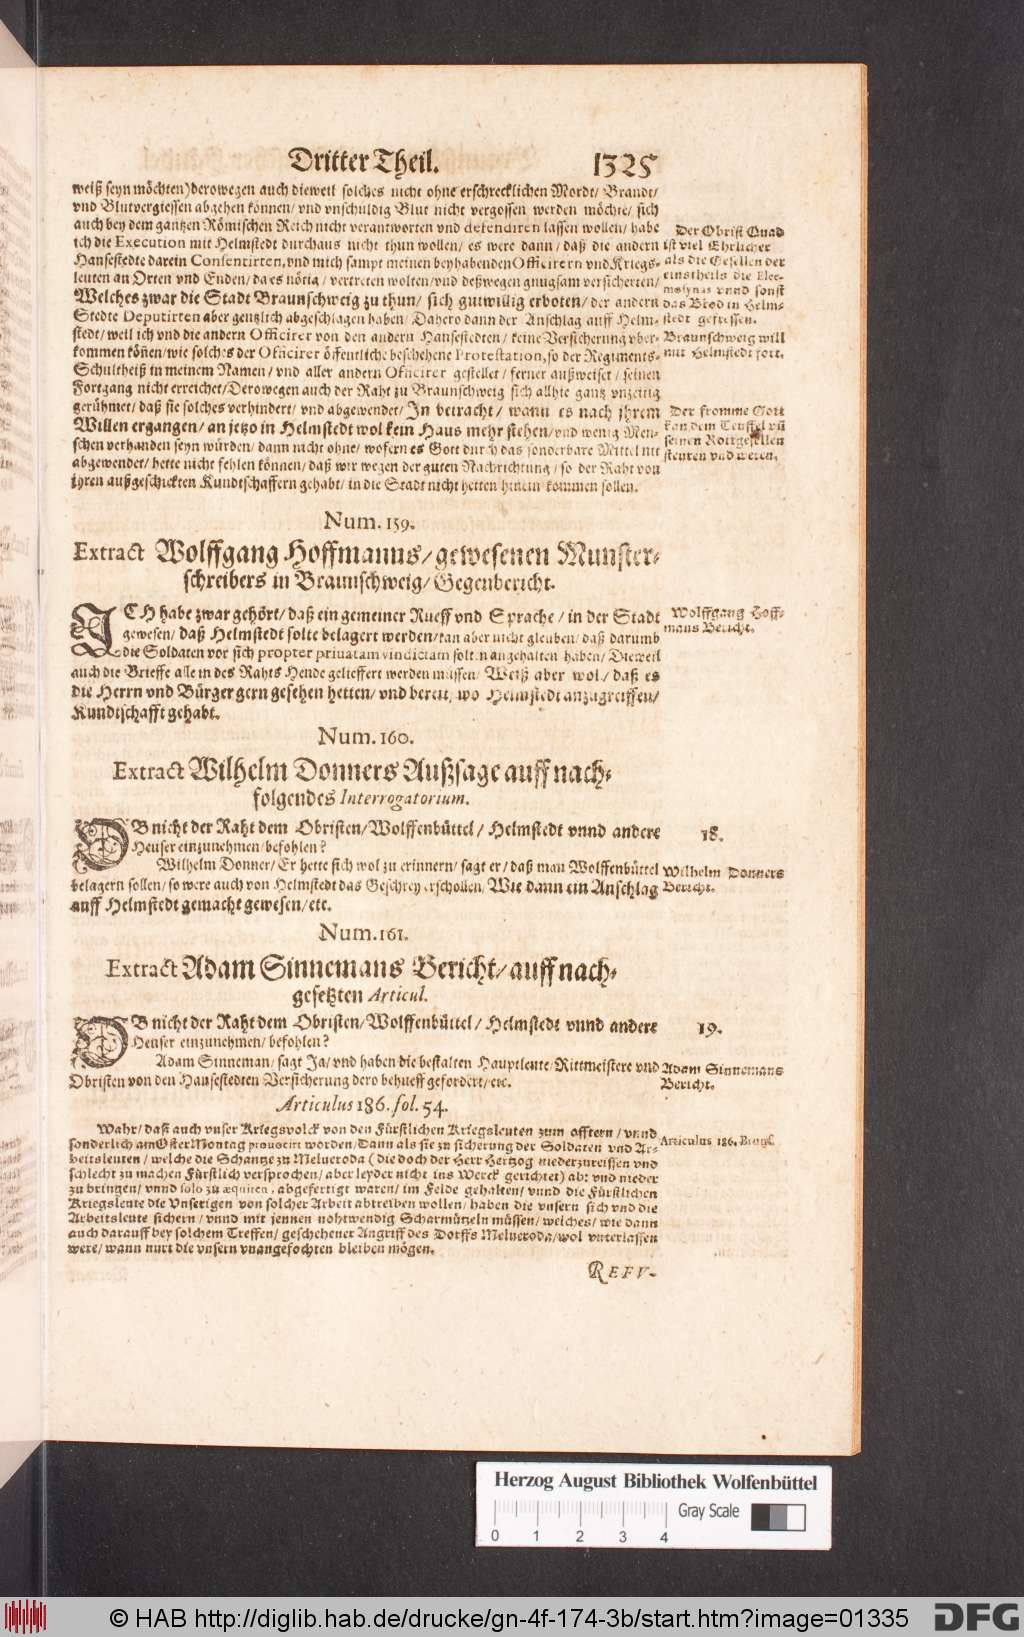 Dritter Theil. 1325
weiß seyn möchten) derowegen auch dieweil solches nicht ohne erschrecklichen Mordt/ Brandt/
vnd Blutvergiessen abgehen können/ vnd vnschüldig Blut nicht vergossen werden möchte/ sich
auch bey dem gantzen Römischen Reich nicht verantworten vnd defendiren lassen wollen/ habe
ich die Execution mit Helmstedt durchaus nicht thun wollen/ es were dann/ daß die andern
Hansestedte darein Consentirten, vnd mich sampt meinen beyhabenden Officirern vnd Kriegs-
leuten an Orten vnd Enden/ da es nötig/ vertreten wolten/ vnd deßwegen gnugsam versicherten/
Welches zwar die Stadt Braunschweig zu thun/ sich gutwillig erboten/ der andern
Stedte Deputirten aber gentzlich abgeschlagen haben/ Dahero dann der Anschlag auff Helm-
stedt/ weil ich vnd die andern Officirer von den andern Hansestedten/ keine Versicherung vber-
kommen können/ wie solches der Officirer öffentliche beschehene Protestation, so der Regiments-
Schultheiß in meinem Namen/ vnd aller andern Officirer gestellet/ ferner außweiset/ seinen
Fortgang nicht erreichet/ Derowegen auch der Raht zu Braunschweig sich allhie gantz vnzeitig
gerühmet/ daß sie solches verhindert/ vnd abgewendet/ In betracht/ wann es nach jhrem
Willen ergangen/ an jetzo in Helmstedt wol kein Haus mehr stehen/ vnd wenig Men-
schen verhanden seyn würden/ dann nicht ohne/ wofern es Gott durch das sonderbare Mittel nit
abgewendet/ hette nicht fehlen können/ daß wir wegen der guten Nachrichtung/ so der Raht von
jhren außgeschickten Kundtschaffern gehabt/ in die Stadt nicht hetten hinein kommen sollen.
Der Obrist Quad
ist viel Ehrlicher
als die Gesellen der
einstheils die Elee-
mosynas vnnd sonst
das Brod in Helm-
stedt gefressen.
Braunschweig will
mit Helmstedt fort.
Der fromme Gott
kan dem Teuffel vñ
seinen Rottgesellen
steuren vnd weren.
Num. 159.
Extract Wolffgang Hoffmanns/ gewesenen Munster-
schreibers in Braunschweig/ Gegenbericht.
ICH habe zwar gehört/ daß ein gemeiner Rueff vnd Sprache/ in der Stadt
gewesen/ daß Helmstedt solte belagert werden/ kan aber nicht gleuben/ daß darumb
die Soldaten vor sich propter priuatam vindictam solten angehalten haben/ Dieweil
auch die Brieffe alle in des Rahts Hende gelieffert werden müssen/ Weiß aber wol/ daß es
die Herrn vnd Bürger gern gesehen hetten/ vnd bereit, wo Helmstedt anzugreiffen/
Kundtschafft gehabt.
Wolffgang Hoff-
mans Bericht.
Num. 160.
Extract Wilhelm Donners Außsage auff nach-
folgendes Interrogatorium.
OB nicht der Raht dem Obristen/ Wolffenbüttel/ Helmstedt vnnd andere
Heuser einzunehmen/ befohlen?
18.
Wilhelm Donner/ Er hette sich wol zu erinnern/ sagt er/ daß man Wolffenbüttel
belagern sollen/ so were auch von Helmstedt das Geschrey erschollen/ Wie dann ein Anschlag
auff Helmstedt gemacht gewesen/ etc.
Wilhelm Donners
Bericht.
Num. 161.
Extract Adam Sinnemans Bericht/ auff nach-
gesetzten Articul.
OB nicht der Raht dem Obristen/ Wolffenbüttel/ Helmstedt vnnd andere
Heuser einzunehmen/ befohlen?
19.
Adam Sinneman/ sagt Ja/ vnd haben die bestalten Hauptleute/ Rittmeistere vnd
Obristen von den Hansestedten Versicherung dero behueff gefordert/ etc.
Adam Sinnemans
Bericht.
Articulus 186. fol. 54.
Wahr/ daß auch vnser Kriegsvolck von den Fürstlichen Kriegsleuten zum offtern/ vnnd
sonderlich am Oster Montag prouocirt worden/ Dann als sie zu sicherung der Soldaten vnd Ar-
beitsleuten/ welche die Schantze zu Melueroda (die doch der Herr Hertzog niederzureissen vnd
schlecht zu machen Fürstlich versprochen/ aber leyder nicht ins Werck gerichtet) ab: vnd nieder
zu bringen/ vnnd solo zu æquiren, abgefertigt waren/ im Felde gehalten/ vnnd die Fürstlichen
Kriegsleute die Vnserigen von solcher Arbeit abtreiben wollen/ haben die vnsern sich vnd die
Arbeitsleute sichern/ vnnd mit jennen nohtwendig Scharmützeln müssen/ welches/ wie dann
auch darauff bey solchem Treffen/ geschehener Angriff des Dorffs Melueroda/ wol vnterlassen
were/ wann nurt die vnsern vnangefochten bleiben mögen.
Articulus 186. Brugs.
REFV-
Herzog August Bibliothek Wolfenbüttel
Gray Scale
0 1 2 3 4
© HAB http://diglib.hab.de/drucke/gn-4f-174-3b/start.htm?image=01335
DFG